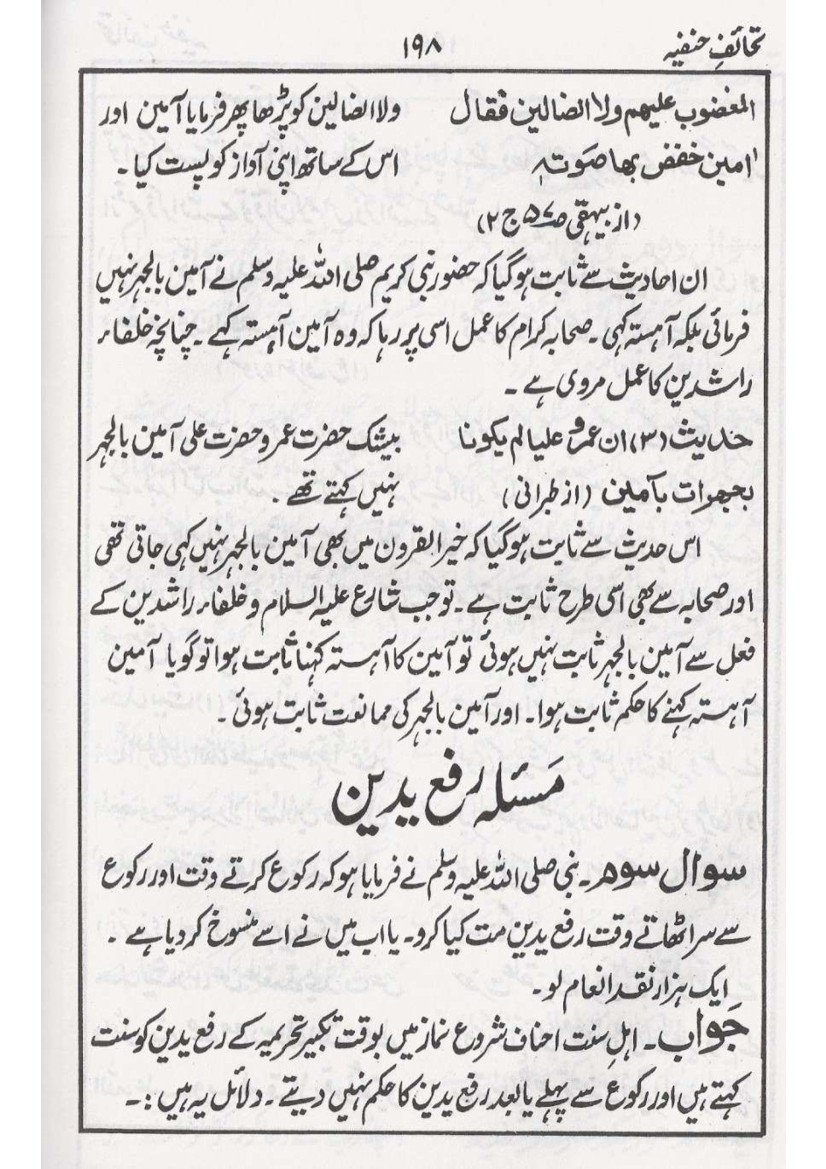 تحائفِ حنفیہ ۱۹۸
المغضوب علیھم ولا الضالین فقال ولا الضالین کو پڑھا پھر فرمایا آمین اور
اٰمین خفض بھا صوتہٖ اس کے ساتھ اپنی آواز کو پست کیا۔
(از بیہقی ص۵۷ ج۲)
ان احادیث سے ثابت ہوگیا کہ حضور نبی کریم صلی اللہ علیہ وسلم نے آمین بالجہر نہیں
فرمائی بلکہ آہستہ کہی۔ صحابہ کرام کا عمل اسی پر رہا کہ وہ آمین آہستہ کہے۔ چنانچہ خلفاء
راشدین کا عمل مروی ہے۔
حدیث (۳) ان عمرو علیا لم یکونا بیشک حضرت عمر و حضرت علی آمین بالجہر
بجہرات بآمین (از طبرانی) نہیں کہتے تھے۔
اس حدیث سے ثابت ہوگیا کہ خیر القرون میں بھی آمین بالجہر نہیں کہی جاتی تھی
اور صحابہ سے بھی اسی طرح ثابت ہے۔ تو جب شارع علیہ السلام و خلفاء راشدین کے
فعل سے آمین بالجہر ثابت نہیں ہوئی تو آمین کا آہستہ کہنا ثابت ہوا تو گویا آمین
آہستہ کہنے کا حکم ثابت ہوا۔ اور آمین بالجہر کی ممانعت ثابت ہوئی۔
مَسئلہ رفع یدین
سوال سوم۔ نبی صلی اللہ علیہ وسلم نے فرمایا ہو کہ رکوع کرتے وقت اور رکوع
سے سر اٹھاتے وقت رفع یدین مت کیا کرو۔ یا اب میں نے اسے منسوخ کر دیا ہے۔
ایک ہزار نقد انعام لو۔
جَواب۔ اہلِ سنت احناف شروع نماز میں بوقت تکبیر تحریمہ کے رفع یدین کو سنت
کہتے ہیں اور رکوع سے پہلے یا بعد رفع یدین کا حکم نہیں دیتے۔ دلائل یہ ہیں:۔